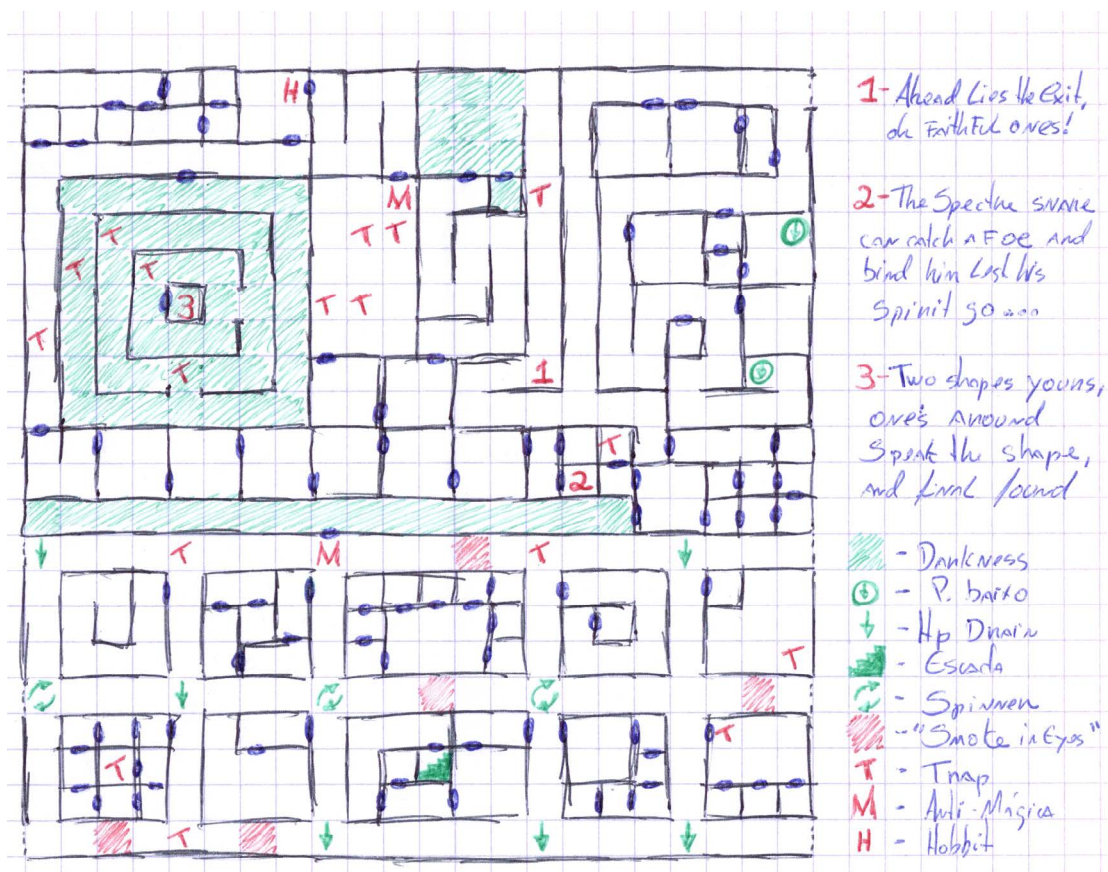 H
M T
T T T
T T
3 T T
T
T 1
T
2
T M T
T
T
T
T
1- Ahead Lies the Exit,
oh Faithful ones!
2- The Spectre snare
can catch a Foe and
bind him lest his
Spirit go...
3- Two shapes yours,
one's around
Speak the shape,
and final found
- Darkness
- P. baixo
- Hp Drain
- Escada
- Spinner
- "Smoke in Eyes"
T - Trap
M - Anti-Mágica
H - Hobbit